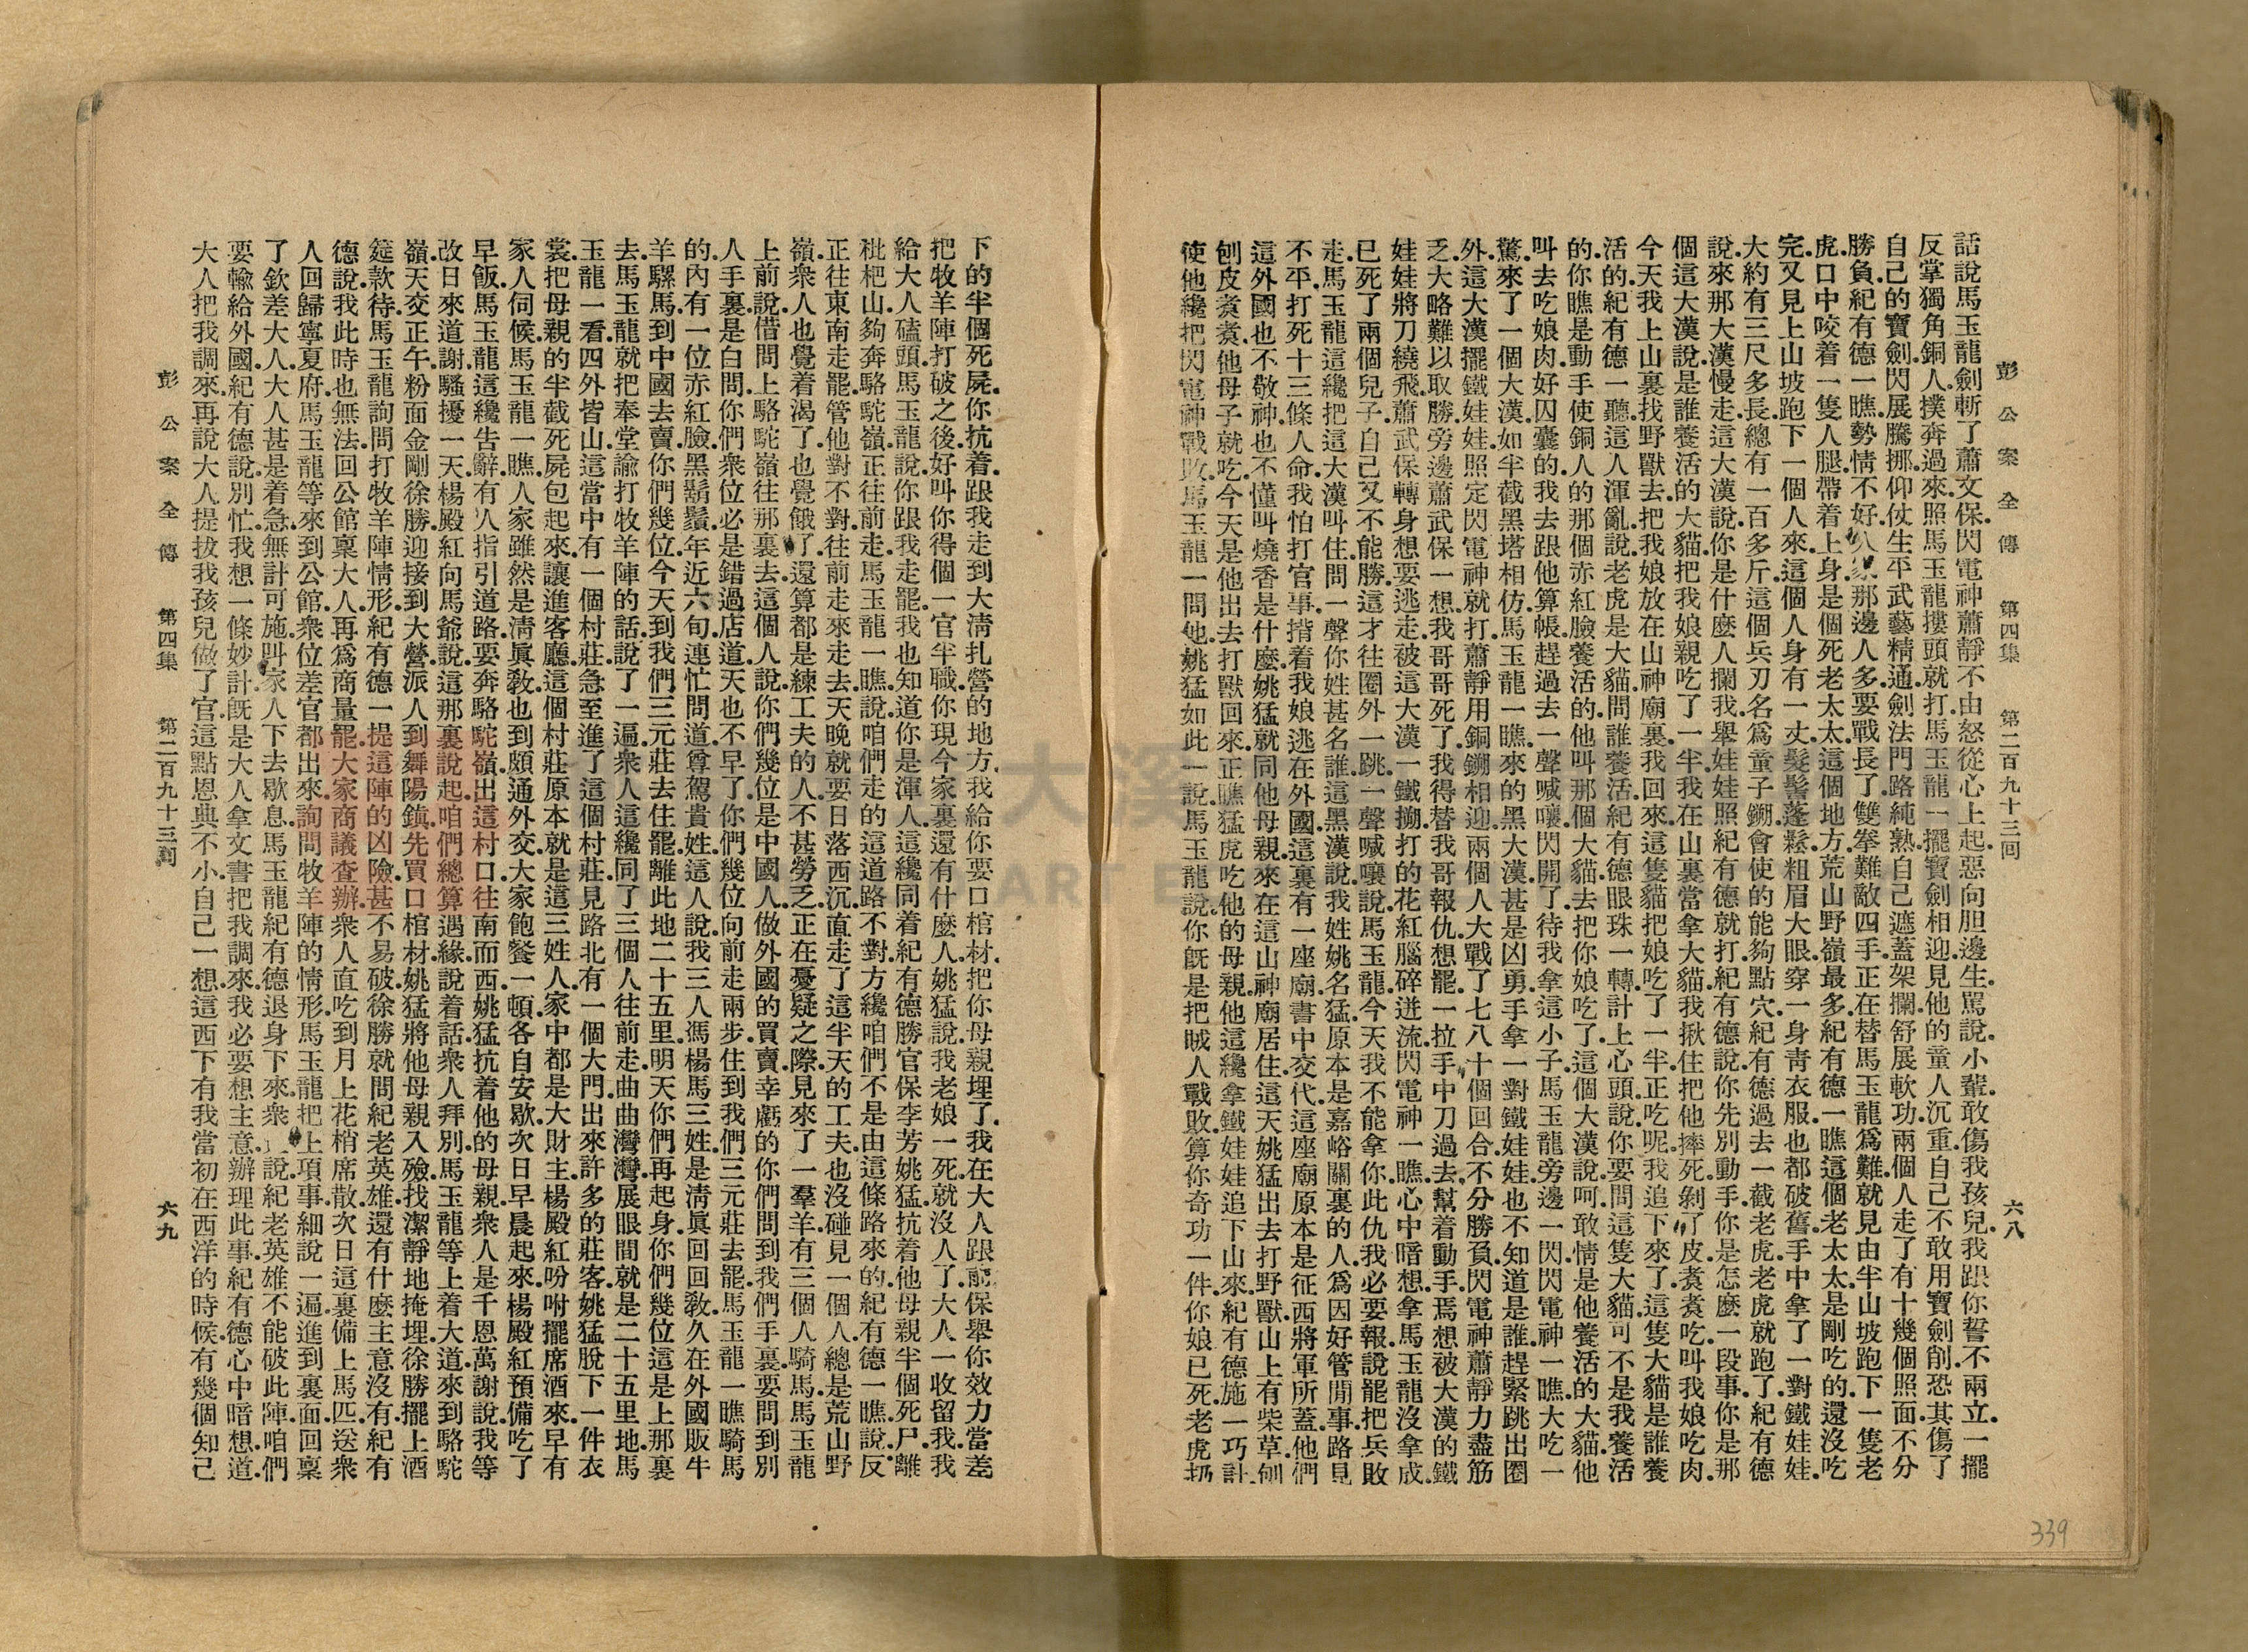 彭公案全傳　第四集　第二百九十三回　六八
話說馬玉龍劍斬了蕭文保.閃電神蕭靜不由怒從心上起.惡向胆邊生.罵說.小輩.敢傷我孩兒.我跟你誓不兩立.一擺
反掌獨角銅人.撲奔過來.照馬玉龍摟頭就打.馬玉龍一擺寶劍相迎.見他的童人沉重.自己不敢用寶劍削.恐其傷了
自己的寶劍.閃展騰挪.仰仗生平武藝精通.劍法門路純熟.自己遮蓋架攔.舒展軟功.兩個人走了有十幾個照面.不分
勝負.紀有德一瞧.勢情不好.那邊人多.要戰長了.雙拳難敵四手.正在替馬玉龍爲難.就見由半山坡跑下一隻老
虎.口中咬着一隻人腿.帶着上身.是個死老太太.這個地方荒山野嶺最多.紀有德一瞧.這個老太太.是剛吃的.還沒吃
完.又見上山坡跑下一個人來.這個人身有一丈.髮髻蓬鬆.粗眉大眼.穿一身靑衣服.也都破舊.手中拿了一對鐵娃娃.
大約有三尺多長.總有一百多斤.這個兵刃名爲童子鎙.會使的能夠點穴.紀有德過去一截老虎.老虎就跑了.紀有德
說.來那大漢慢走.這大漢說.你是什麼人攔我.舉娃娃照紀有德就打.紀有德說.你先別動手.你是怎麼一段事.你是那
個.這大漢說.是誰養活的大貓.把我娘親吃了一半.我在山裏當拿大貓.我揪住把他摔死.剝了皮.煑煑吃.叫我娘吃肉.
今天我上山裏找野獸去.把我娘放在山神廟裏.我回來.這隻貓把娘吃了一半.正吃呢.我追下來了.這隻大貓是誰養
活的.紀有德一聽.這人渾亂.說老虎是大貓.問誰養活.紀有德眼珠一轉.計上心頭.說.你要問這隻大貓.可不是我養活
的.你瞧是動手使銅人的那個赤紅臉養活的.他叫那個大貓去把你娘吃了.這個大漢說.呵.敢情是他養活的大貓.他
叫去吃娘肉.好囚囊的.我去跟他算帳.趕過去一聲喊嚷.閃開了.待我拿這小子.馬玉龍旁邊一閃.閃電神一瞧.大吃一
驚.來了一個大漢.如半截黑塔相仿.馬玉龍一瞧.來的黑大漢甚是凶勇.手拿一對鐵娃娃.也不知道是誰.趕緊跳出圈
外.這大漢擺鐵娃娃.照定閃電神就打.蕭靜用銅鎙相迎.兩個人大戰了七八十個回合.不分勝負.閃電神蕭靜力盡筋
乏.大略難以取勝.旁邊蕭武保一想.我哥哥死了.我得替我哥報仇.想罷.一拉手中刀.過去幫着動手.焉想被大漢的鐵
娃娃將刀繞飛.蕭武保轉身想要逃走.被這大漢一鐵搠打的花紅腦碎迸流.閃電神一瞧.心中暗想.拿馬玉龍沒拿成
已死了兩個兒子.自己又不能勝.這才往圈外一跳.一聲喊嚷.說.馬玉龍.今天我不能拿你.此仇我必要報.說罷.把兵敗
走.馬玉龍這纔把這大漢叫住.問一聲.你姓甚名誰.這黑漢說.我姓姚名猛.原本是嘉峪關裏的人.爲因好管閒事.路見
不平.打死十三條人命.我怕打官事.揹着我娘逃在外國.這裏有一座廟.書中交代.這座廟原本是征西將軍所蓋.他們
這外國也不敬神.也不懂叫燒香是什麼.姚猛就同他母親來在這山神廟居住.這天姚猛出去打野獸.山上有柴草.刨
刨皮煑煑.他母子就吃.今天是他出去打獸回來.正瞧猛虎吃他的母親.他這纔拿鐵娃娃追下山來.紀有德施一巧計.
使他纔把閃電神戰敗.馬玉龍一問他.姚猛如此一說.馬玉龍說.你旣是把賊人戰敗.算你奇功一件.你娘已死.老虎扔
下的半個死屍.你抗着跟我走.到大淸扎營的地方.我給你要口棺材.把你母親埋了.我在大人跟前保舉你効力當差
把牧羊陣打破之後.好叫你得個一官半職.你現今家裏還有什麼人.姚猛說.我老娘一死.就沒人了.大人一收留我.我
給大人磕頭.馬玉龍說.你跟我走罷.我也知道你是渾人.這纔同着紀有德.勝官保.李芳.姚猛抗着他母親半個死尸.離
枇杷山.夠奔駱駝嶺.正往前走.馬玉龍一瞧說.咱們走的這道路不對方纔咱們不是由這條路來的.紀有德一瞧說.反
正往東南走罷.管他對不對.往前走來走去.天晚就要日落西沉.直走了這半天的工夫.也沒碰見一個人.總是荒山野
嶺.衆人也覺着渴了.也覺餓了.還算都是練工夫的人.不甚勞乏.正在憂疑之際.見來了一羣羊.有三個人騎馬.馬玉龍
上前說.借問上駱駝嶺往那裏去.這個人說.你們幾位是中國人.做外國的買賣.幸虧的你們問到我們手裏.要問到別
人手裏.是白問.你們衆位必是錯過店道.天也不早了.你們幾位向前走兩步.住到我們三元莊去罷.馬玉龍一瞧騎馬
的內有一位赤紅臉.黑鬍鬚.年近六旬.連忙問道.尊駕貴姓.這人說.我三人馮楊馬三姓.是淸眞回回敎.久在外國販牛
羊騾馬.到中國去賣.你們幾位今天到我們三元莊去住罷.離此地二十五里.明天你們再起身.你們幾位這是上那裏
去.馬玉龍就把奉堂諭打牧羊陣的話.說了一遍.衆人這纔同了三個人往前走.曲曲灣灣.展眼間就是二十五里地.馬
玉龍一看.四外皆山.這當中有一個村莊.急至進了這個村莊.見路北有一個大門.出來許多的莊客.姚猛脫下一件衣
裳.把母親的半截死屍包起來.讓進客廳.這個村莊原本就是這三姓人家.中都是大財主.楊殿紅吩咐擺席酒來.早有
家人伺候.馬玉龍一瞧.人家雖然是淸眞敎.也到頗通外交.大家飽餐一頓.各自安歇.次日早晨起來.楊殿紅預備吃了
早飯.馬玉龍這纔吿辭.有人指引道路.要奔駱駝嶺.出這村口往南而西.姚猛抗着他的母親.衆人是千恩萬謝.說.我等
改日來道謝.騷擾一天.楊殿紅向馬爺說.這那裏說起.咱們總算遇緣.說着話.衆人拜別.馬玉龍等上着大道.來到駱駝
嶺.天交正午.粉面金剛徐勝迎接到大營.派人到舞陽鎭.先買口棺材.姚猛將他母親入殮.找潔靜地掩埋.徐勝擺上酒
筵款待.馬玉龍詢問打牧羊陣情形.紀有德一提.這陣的凶險.甚不易破.徐勝就問紀老英雄.還有什麼主意沒有.紀有
德說.我此時也無法.回公館稟大人.再爲商量罷.大家商議查辦.衆人直吃到月上花梢.席散.次日這裏備上馬匹.送衆
人回歸寧夏府.馬玉龍等來到公館.衆位差官都出來詢問牧羊陣的情形.馬玉龍把上項事細說一遍.進到裏面.回稟
了欽差大人.大人甚是着急.無計可施.叫家人下去歇息.馬玉龍紀有德退身下來.衆人說.紀老英雄不能破此陣.咱們
要輸給外國.紀有德說.別忙.我想一條妙計.旣是大人拿文書把我調來.我必要想主意辦理此事.紀有德心中暗想.道
大人把我調來.再說大人提拔我孩兒做了官.這點恩典不小.自己一想.這西下有我當初在西洋的時候.有幾個知己
彭公案全傳　第四集　第二百九十三回　六九
339